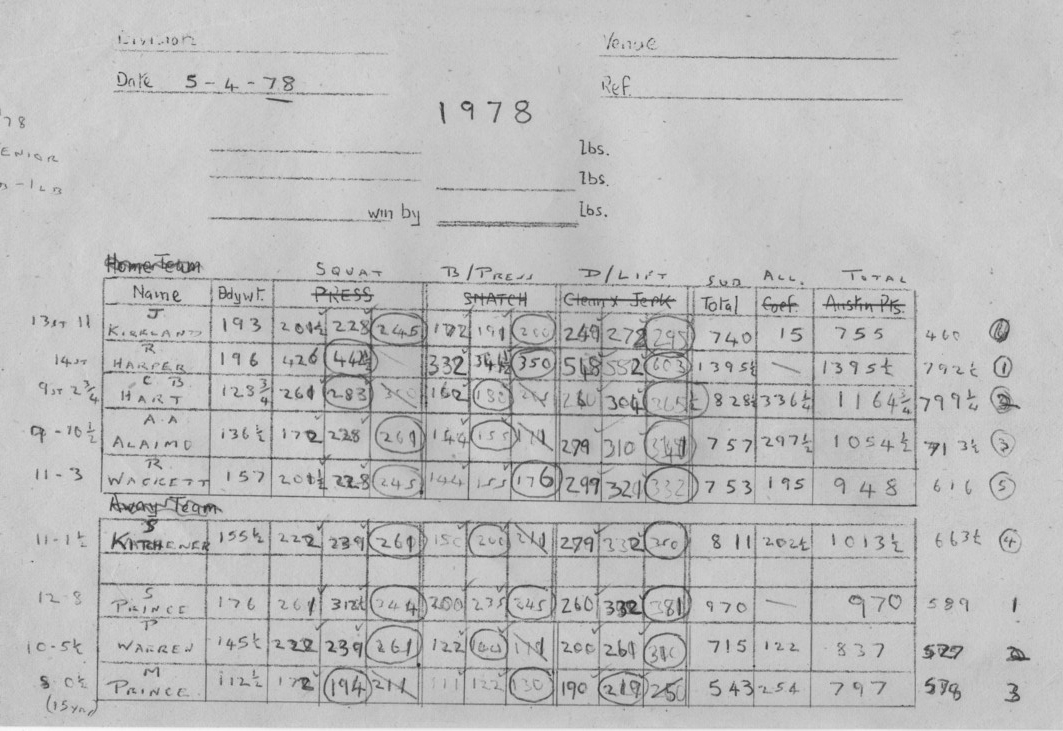 Division
Venue
Date 5-4-78
Ref.
78
1978
ENIOR
lbs.
lbs.
win by lbs.
Home Team SQUAT B/PRESS D/LIFT SUB ALL. TOTAL
Name Bdywt. PRESS SNATCH Clean & Jerk Total Coef. Austin Pts.
13st 11 J KIRKLAND 193 228 245 172 191 249 272 295 740 15 755 460
14st R HARPER 196 426 332 350 548 552 603 1395½ — 1395½ 792½ 1
9st 2¾ C B HART 128¾ 261 283 162 180 260 304 828½ 336¼ 1164¾ 799¼ 2
9-10½ A.A ALAIMO 136½ 172 228 261 144 155 171 279 310 341 757 297½ 1054½ 713½ 3
11-3 R. WACKETT 157 228 245 144 155 176 299 321 332 753 195 948 616 5
Away Team
11-1½ S KITCHENER 155½ 222 239 261 150 200 211 279 332 350 811 202½ 1013½ 663½ 4
12-8 S PRINCE 176 261 318½ 344 200 235 245 260 332 381 970 — 970 589 1
10-5½ P WARREN 145½ 222 239 261 122 144 171 200 261 310 715 122 837 527 2
8.0½ M PRINCE 112½ 172 194 211 111 122 130 190 219 250 543 254 797 578 3
(15 yrs)